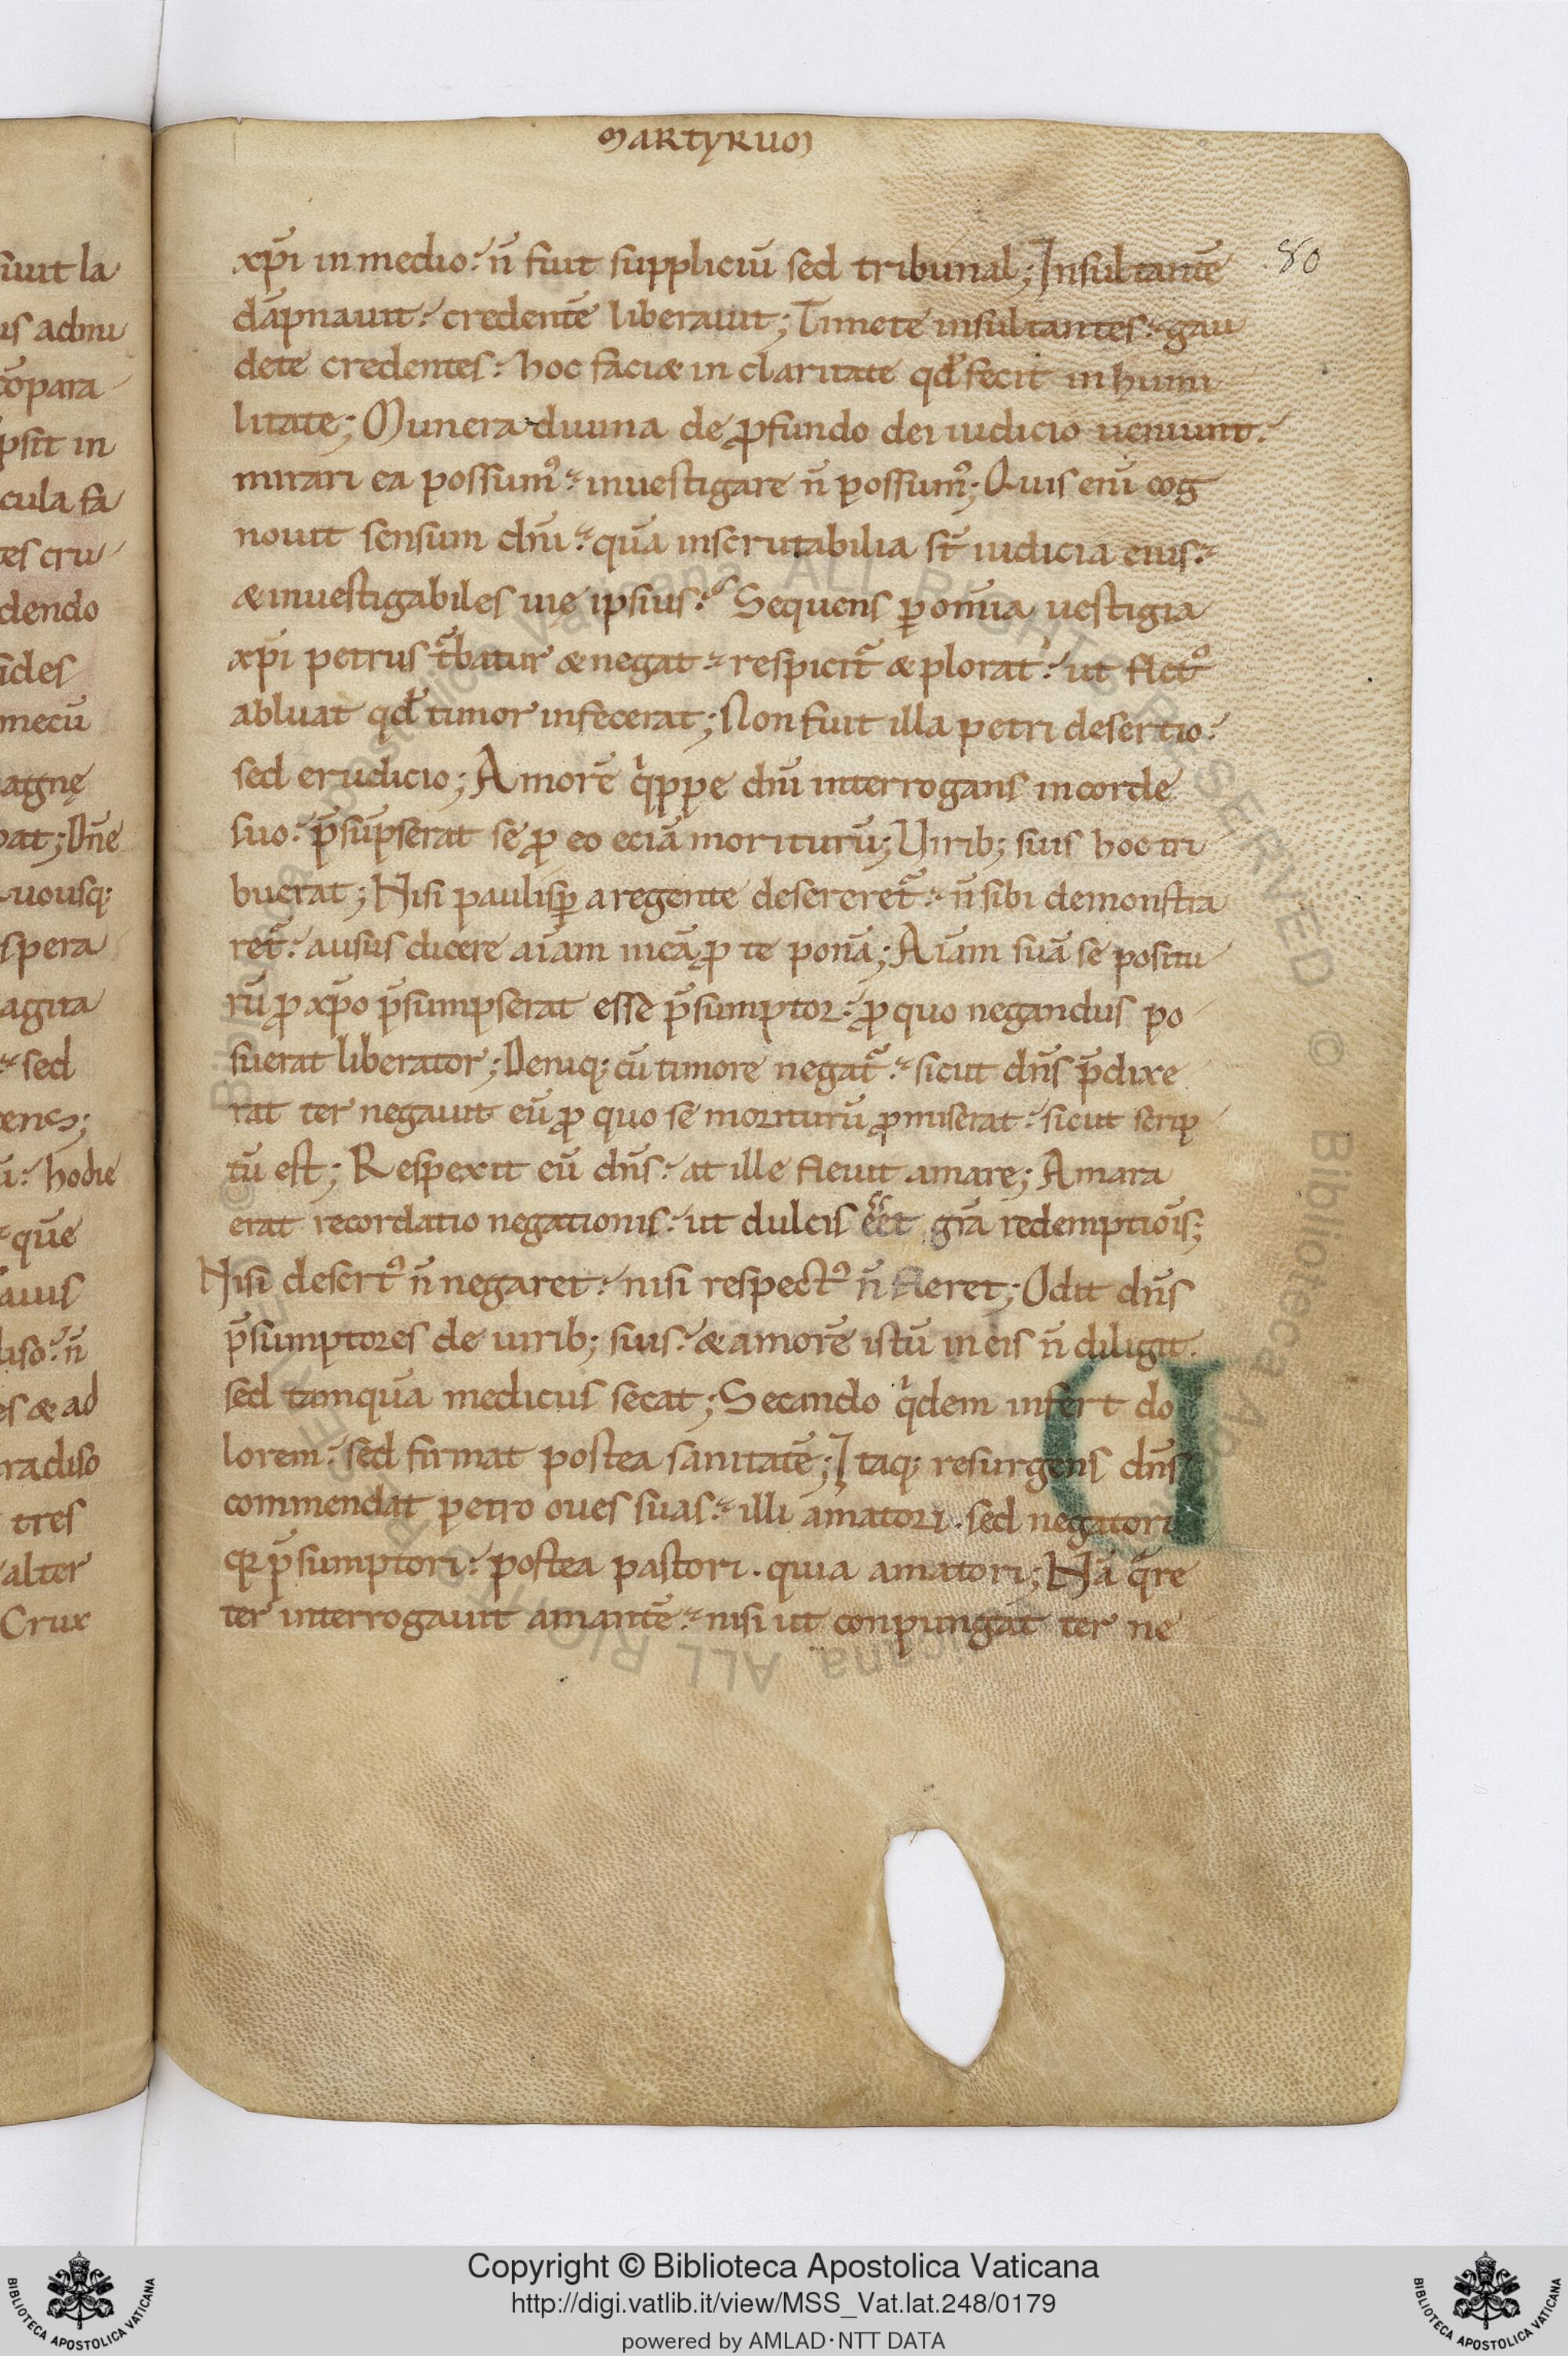 MARTYRUM
80
xp̄i in medio. n̄ fuit suppliciū sed tribunal; Insultantē
dāpnauit. credentē liberauit; Timete insultantes. gau
dete credentes. hoc faciæ in claritate qđ fecit in humi
litate; Munera diuina de ꝓfundo dei iudicio ueniunt.
mirari ea possumꝰ. inuestigare n̄ possumꝰ; Quis eni̅ cog
nouit sensum dn̄i. quā inscrutabilia st̄ iudicia eius.
æ inuestigabiles uię ipsius. Sequens ꝑ om̄ia uestigia
xp̄i petrus t̄batur æ negat. respicit̄ æ plorat. ut fletꝰ
abluat qđ timor infecerat; Non fuit illa petri desertio.
sed erudicio; Amorē qͥppe dn̄i interrogans in corde
suo. p̄sūpserat se ꝓ eo eciā moriturū; Uirib; suis hoc tri
buerat; Nisi paulisꝑ a regente desereret̄. n̄ sibi demonstra
ret̄. ausus dicere ai̅am meā ꝓ te ponā; Ai̅am suā se positu
rū ꝓ xp̄o p̄sumpserat esse p̄sumptor. ꝓ quo negandus po
suerat liberator; Deniq; cū timore negat̄. sicut dn̄s p̄dixe
rat ter negauit eū ꝓ quo se moriturū ꝓmiserat. sicut scrip
tū est; Respexit eū dn̄s. at ille fleuit amare; Amara
erat recordatio negationis. ut dulcis eēt gr̄a redemptiōis;
Nisi desertꝰ n̄ negaret. nisi respectꝰ n̄ fleret; Odit dn̄s
p̄sumptores de uirib; suis. æ amorē istū in eis n̄ diligit.
sed tamquā medicus secat; Secando qͥdem infert do
lorem. sed firmat postea sanitatē; Itaq; resurgens dn̄s
commendat petro oues suas. illi amatori. sed negatori
qr p̄sumptori. postea pastori. quia amatori; Nā qͣre
ter interrogauit amantē. nisi ut conpungat ter ne
siuit la
us admi
cōpara
psit in
cula fa
tes cru
dendo
mecū
agnę
bat; Dn̄e
uousq;
spera
agita
sed
ū. hodie
quē
auus
diso. n̄
es æ ad
radiso
tres
alter
Crux
Copyright © Biblioteca Apostolica Vaticana
http://digi.vatlib.it/view/MSS_Vat.lat.248/0179
powered by AMLAD·NTT DATA
BIBLIOTECA APOSTOLICA VATICANA
BIBLIOTECA APOSTOLICA VATICANA